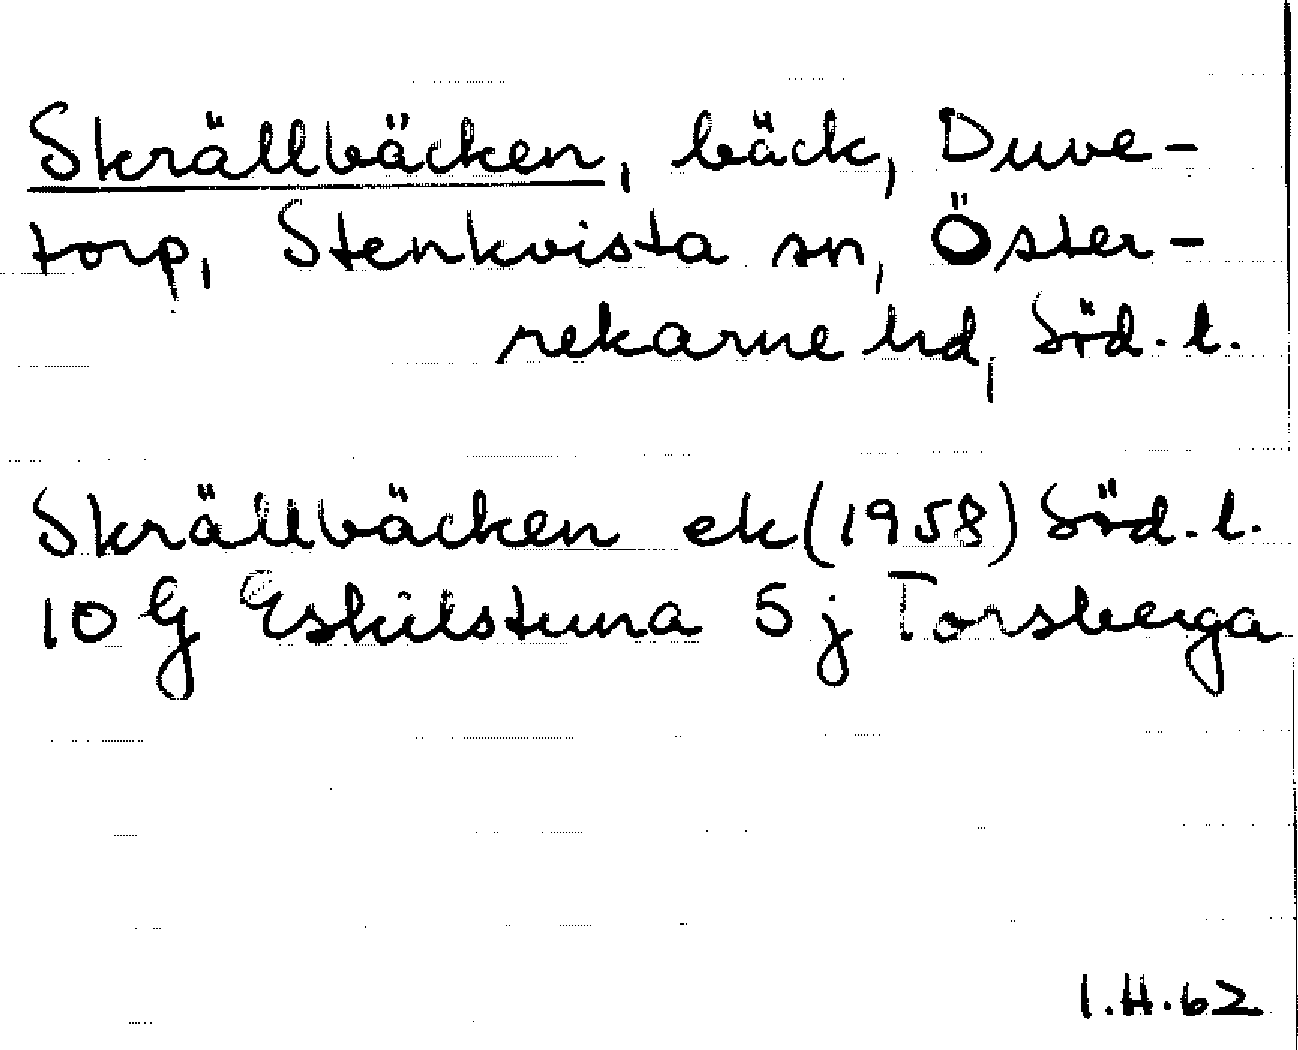 Skrällbäcken, bäck, Duve-
torp, Stenkvista sn, Öster-
rekarne hd, Söd. l.
Skrällbäcken ek (1958) Söd. l.
10 G Eskilstuna 5 j Torsberga
I.H. 62